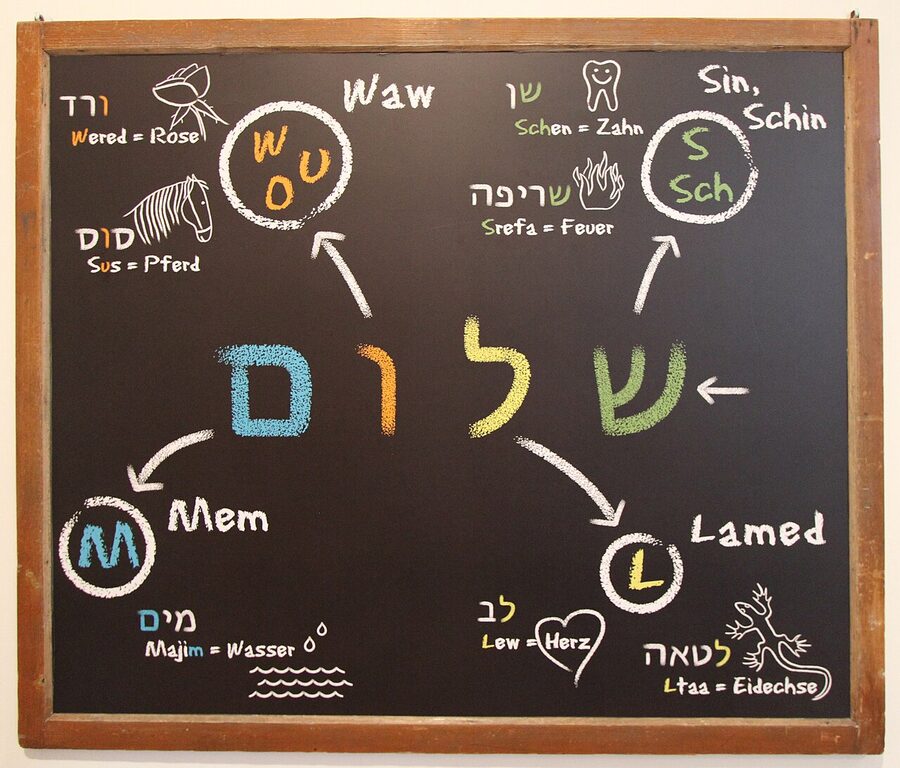 ורד
Wered = Rose
סוס
Sus = Pferd
W
U
O
Waw
שן
Schen = Zahn
שריפה
Srefa = Feuer
S
Sch
Sin,
Schin
שלום
M
Mem
מים
Majim = Wasser
L
Lamed
לב
Lew = Herz
לטאה
Ltaa = Eidechse